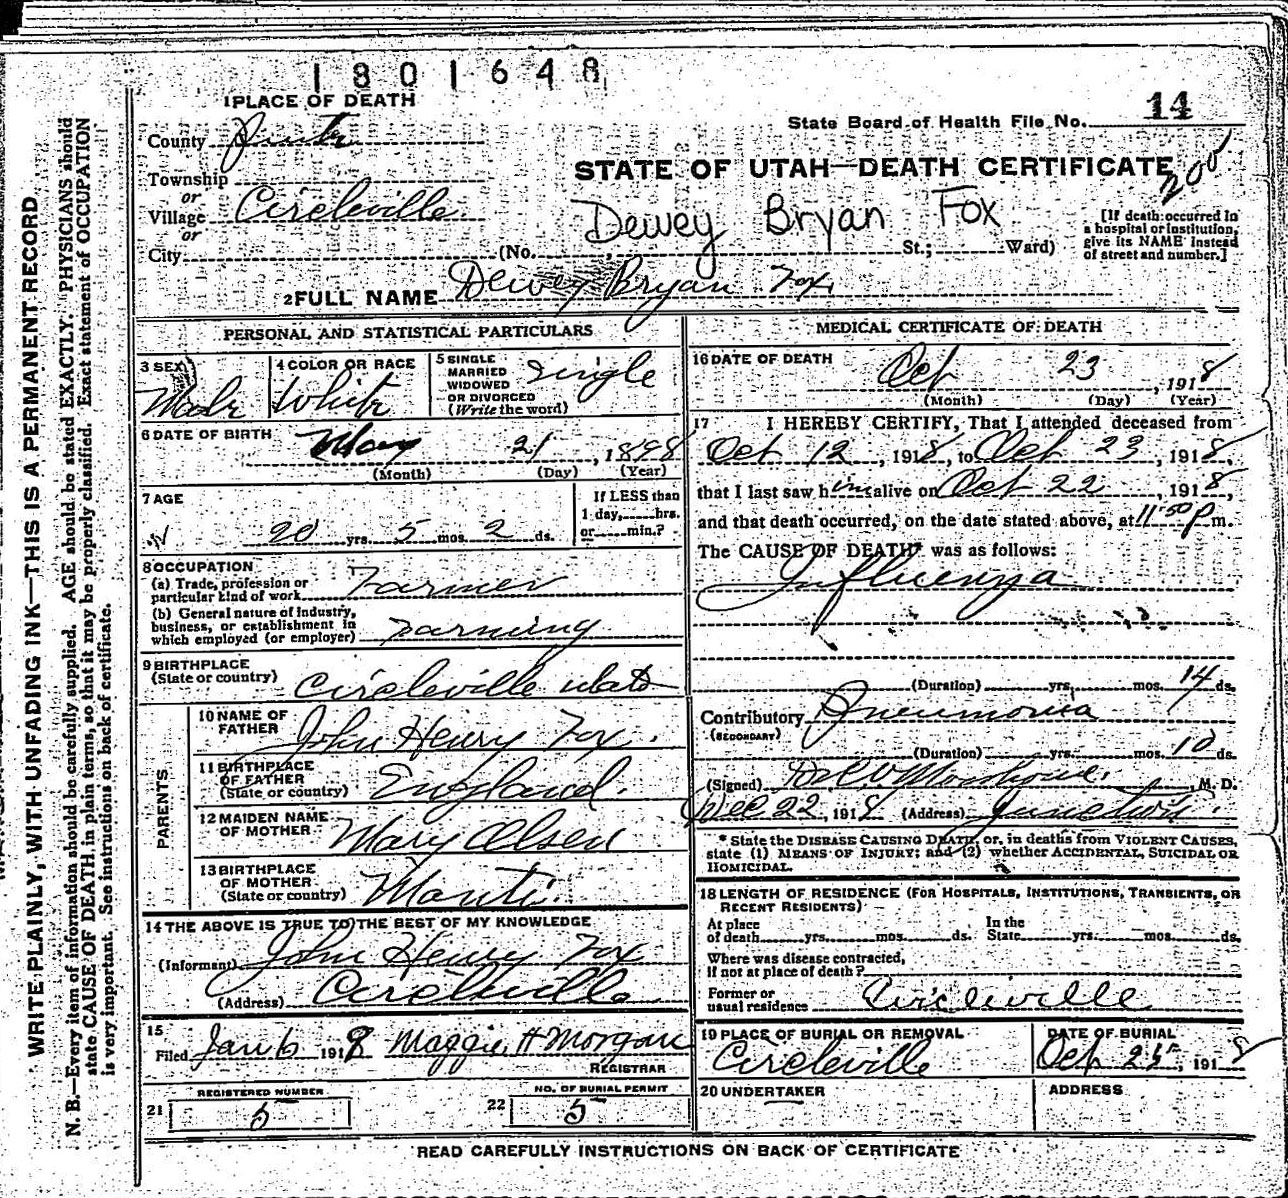 1801648
1 PLACE OF DEATH
State Board of Health File No. 14
County
STATE OF UTAH—DEATH CERTIFICATE
200
Township
or
Village Circleville
or
Dewey Bryan Fox
[If death occurred in
a hospital or institution,
give its NAME instead
of street and number.]
City (No. St.; Ward)
2 FULL NAME Dewey Bryan Fox
PERSONAL AND STATISTICAL PARTICULARS
3 SEX Male
4 COLOR OR RACE White
5 SINGLE
MARRIED
WIDOWED
OR DIVORCED
(Write the word) Single
6 DATE OF BIRTH May 21, 1898
(Month) (Day) (Year)
7 AGE
20 yrs. 5 mos. 2 ds.
If LESS than
1 day, hrs.
or min.?
8 OCCUPATION
(a) Trade, profession or
particular kind of work Farmer
(b) General nature of industry,
business, or establishment in
which employed (or employer) Farming
9 BIRTHPLACE
(State or country) Circleville Utah
PARENTS
10 NAME OF
FATHER John Henry Fox.
11 BIRTHPLACE
OF FATHER
(State or country) England.
12 MAIDEN NAME
OF MOTHER Mary Olsen
13 BIRTHPLACE
OF MOTHER
(State or country) Manti
14 THE ABOVE IS TRUE TO THE BEST OF MY KNOWLEDGE
(Informant) John Henry Fox
(Address) Circleville
15
Filed Jan 6 191 Maggie H Morgan
REGISTRAR
REGISTERED NUMBER
21 5
NO. OF BURIAL PERMIT
22 5
MEDICAL CERTIFICATE OF DEATH
16 DATE OF DEATH
Oct 23, 1918
(Month) (Day) (Year)
17 I HEREBY CERTIFY, That I attended deceased from
Oct 12, 1918, to Oct 23, 1918,
that I last saw him alive on Oct 22, 1918,
and that death occurred, on the date stated above, at 11:50 P m.
The CAUSE OF DEATH* was as follows:
Influenza
(Duration) yrs. mos. 14 ds.
Contributory Pneumonia
(SECONDARY)
(Duration) yrs. mos. 10 ds.
(Signed) M. D.
Dec 22, 1918 (Address) Junction.
* State the DISEASE CAUSING DEATH, or, in deaths from VIOLENT CAUSES,
state (1) MEANS OF INJURY; and (2) whether ACCIDENTAL, SUICIDAL OR
HOMICIDAL.
18 LENGTH OF RESIDENCE (FOR HOSPITALS, INSTITUTIONS, TRANSIENTS, OR
RECENT RESIDENTS)
At place
of death yrs. mos. ds.
In the
State yrs. mos. ds.
Where was disease contracted,
if not at place of death?
Former or
usual residence Circleville
19 PLACE OF BURIAL OR REMOVAL
Circleville
DATE OF BURIAL
Oct 25, 1918
20 UNDERTAKER
ADDRESS
READ CAREFULLY INSTRUCTIONS ON BACK OF CERTIFICATE
WRITE PLAINLY, WITH UNFADING INK—THIS IS A PERMANENT RECORD
N. B.—Every item of information should be carefully supplied. AGE should be stated EXACTLY. PHYSICIANS should
state CAUSE OF DEATH in plain terms, so that it may be properly classified. Exact statement of OCCUPATION
is very important. See instructions on back of certificate.